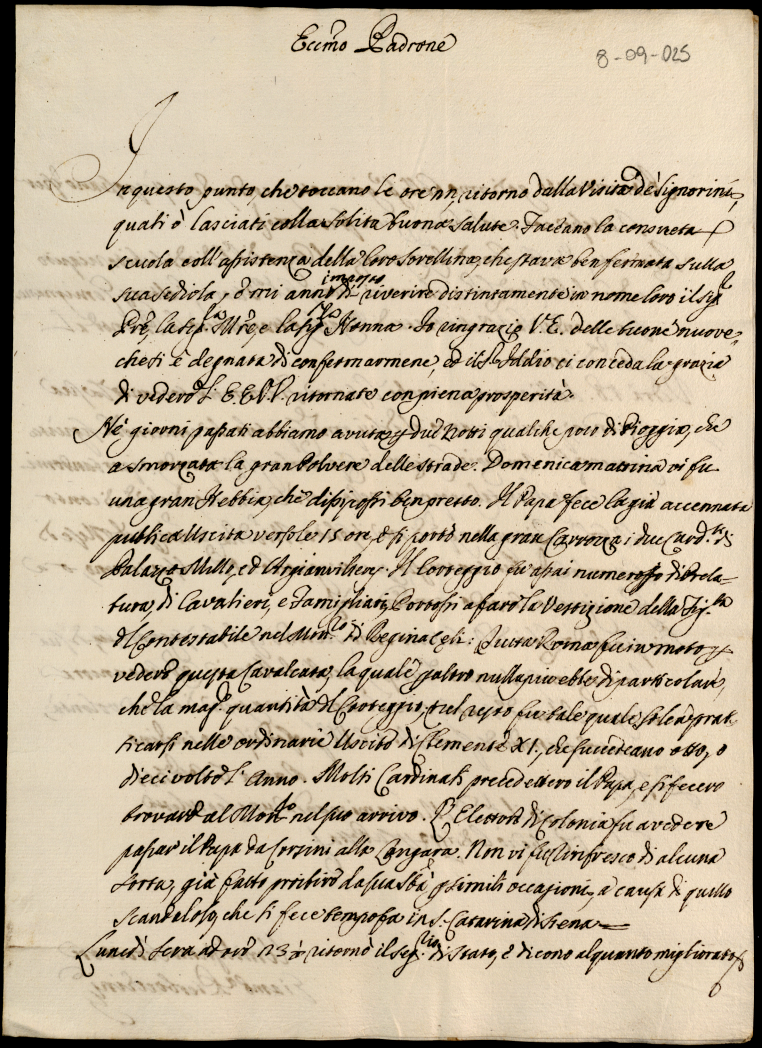 Eccmo Padrone
8-09-025
In questo punto, che toccano le ore nn, ritorno dalla Visita de Signorini,
quali ò lasciati colla solita buona salute. Faceano la consueta
scuola coll'assistenza della loro Sorellina, che stava ben fermata sulla
imposto
sua sediola, e mi anno di riverire distintamente in nome loro il Sigr
Pre, la Sigra Mre, e la Sigra Nonna. Io ringrazio V.E. delle buone nuove,
che si è degnata di confermarmene, ed il S. Iddio ci conceda la grazia
di vedere l'EE.VV. ritornate con piena prosperità.
Nè giorni passati abbiamo avuta p due Notti qualche poco di Pioggia, che
a smorzata la gran Polvere delle strade. Domenica mattina vi fu
una gran Nebbia, che dissipossi ben presto. Il Papa fece la già accennata
publica Uscita verso le 15 ore, e si portò nella gran Carrozza i due Cardli di
Palazzo Millo, ed Argianvillers. Il Corteggio fu assai numeroso di Prela=
tura, di Cavalieri, e Famigliari. Portossi a fare la Vestizione della Figlia
del Contestabile nel Monro di Regina Celi: Tutta Roma fu in moto p
vedere questa Cavalcata, la quale p altro nulla più ebbe di particolare,
che la magr quantità del Corteggio, nel resto fu tale quale solea prat-
ticarsi nelle ordinarie Uscite di Clemente XI, che succedeano otto, o
dieci volte l'Anno. Molti Cardinali precedettero il Papa, e si fecero
trovare al Monro nel suo arrivo. L'Elettore di Colonia fu a vedere
passar il Papa da Corsini alla Longara. Non vi fu Rinfresco di alcuna
sorta, già fatto proibire da Sua Stà p simili occasioni, a causa di quello
scandaloso, che si fece tempo fa in S. Catarina di Siena
Lunedì sera ad ore 23 ritornò il Segrio di Stato, e dicono alquanto migliorato